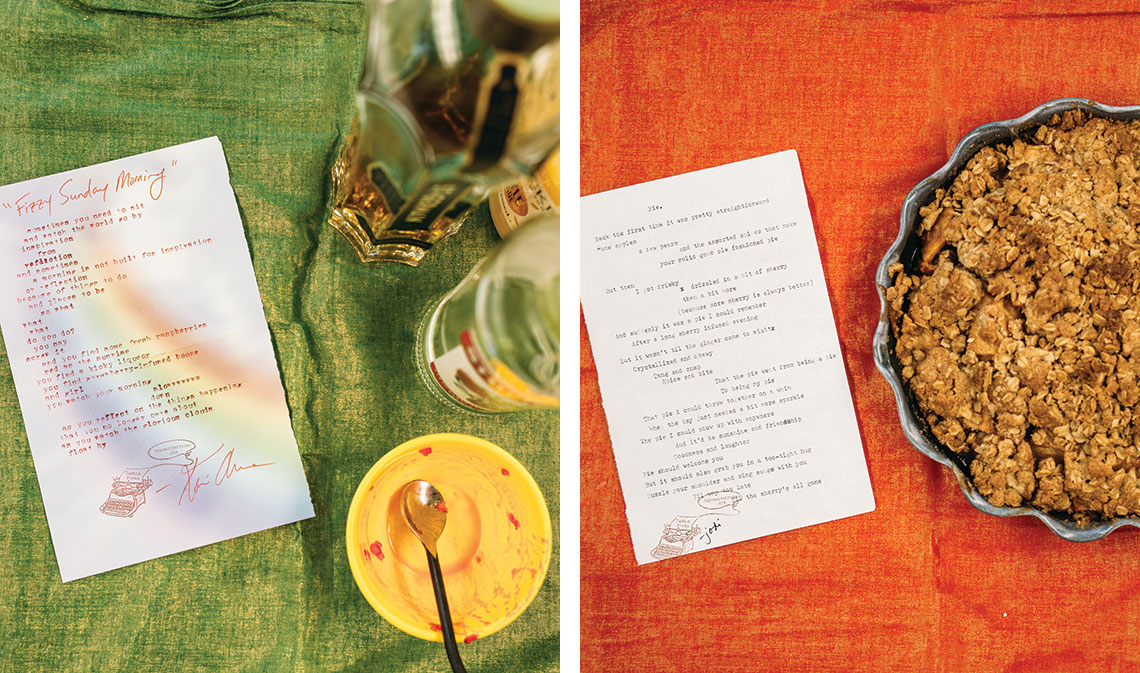 "Fizzy Sunday Morning"
sometimes you need to sit
and watch the world go by
inspiration
from
reflection
and sometimes
a morning is not built for inspiration
or reflection
because of things to do
and places to be
so what
what
what
do you do?
you may
and you find some fresh raspberries
red as the sunrise
you find a kicky liquor
you find strawberry-infused booze
and girl
you watch your morning
down
as you reflect on the things happening
that you no longer care about
as you watch the glorious clouds
float by
Pie.
Back the first time it was pretty straightforward
some apples
a few years
and the assorted
that make
your solid good ole fashioned pie
But then
I got frisky
x drizzled in a bit of sherry
then a bit more
(because more sherry is always better)
And suddenly it was a pie I could remember
After a long sherry infused evening
But it wasn't til the ginger came to visit
Crystallized and chewy
Tang and snap
Spice and bite
That the pie went from being a pie
To being my pie
That pie i could throw together on a whim
When the day just needed a bit more sparkle
The pie I could show up with anywhere
And it'd be sunshine and friendship
Goodness and laughter
Pie should welcome you
But it should also grab you in a too-tight hug
Nuzzle your shoulder and sing songs with you
til way too late
the sherry's all gone
typewriterrodeo
.com
-jodi